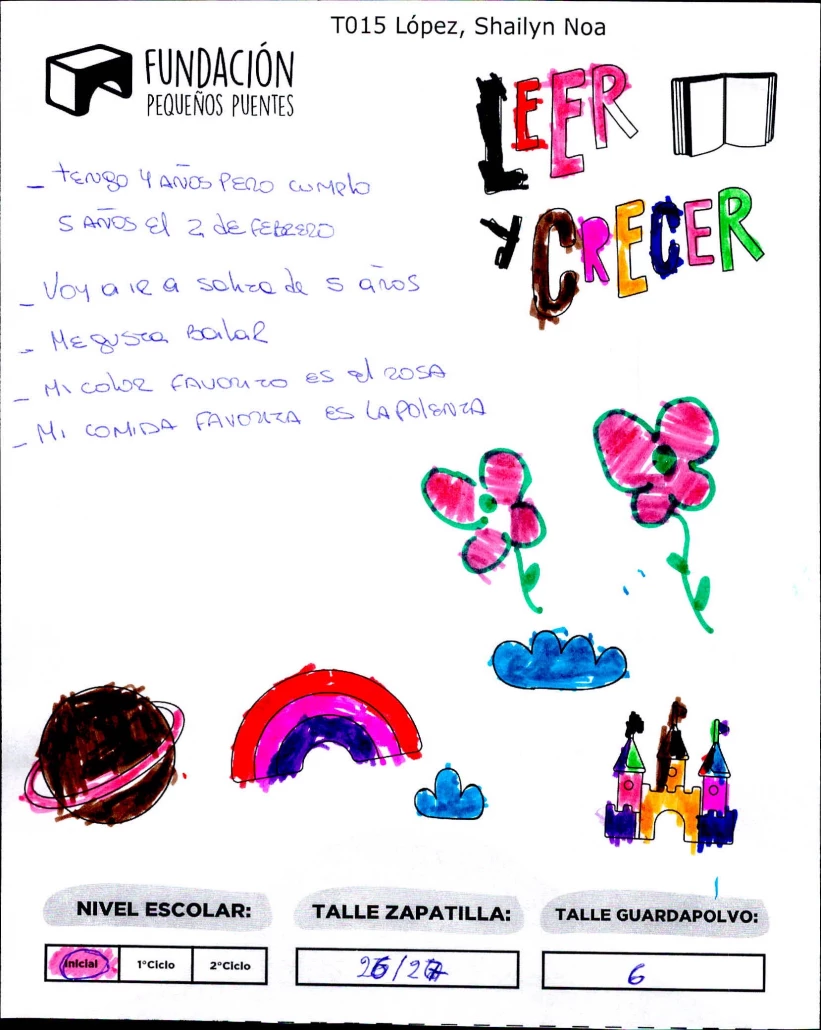 T015 López, Shailyn Noa
FUNDACIÓN
PEQUEÑOS PUENTES
LEER
Y CRECER
- tengo 4 AÑOS PERO cumplo
5 AÑOS el 2 de FEBRERO
- Voy a ir a salita de 5 años
- Me gusta Bailar
- Mi color FAVORITO ES el ROSA
- Mi COMIDA FAVORITA ES LA POLENTA
NIVEL ESCOLAR:
TALLE ZAPATILLA:
TALLE GUARDAPOLVO:
Inicial
1°Ciclo
2°Ciclo
26/27
6